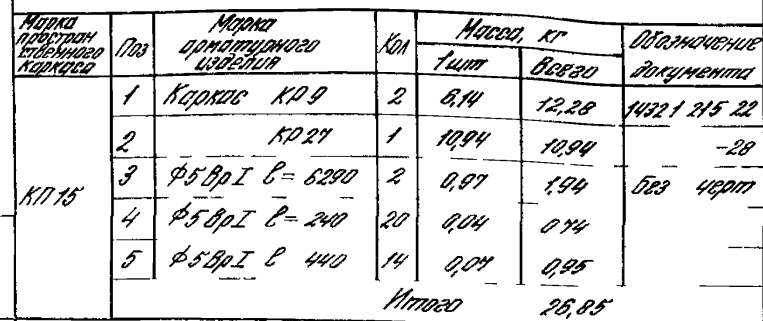 Марка пространственного каркаса Поз Марка арматурного изделия Кол Масса, кг 1 шт Всего Обозначение документа
КП 15
1 Каркас КР 9 2 6,14 12,28 1432 1 215 22
2 КР 27 1 10,94 10,94 -28
3 Ф5 ВрI ℓ= 6290 2 0,97 1,94 Без черт
4 Ф5 ВрI ℓ= 240 20 0,04 0 74
5 Ф5 ВрI ℓ 440 14 0,07 0,95
Итого 26,85